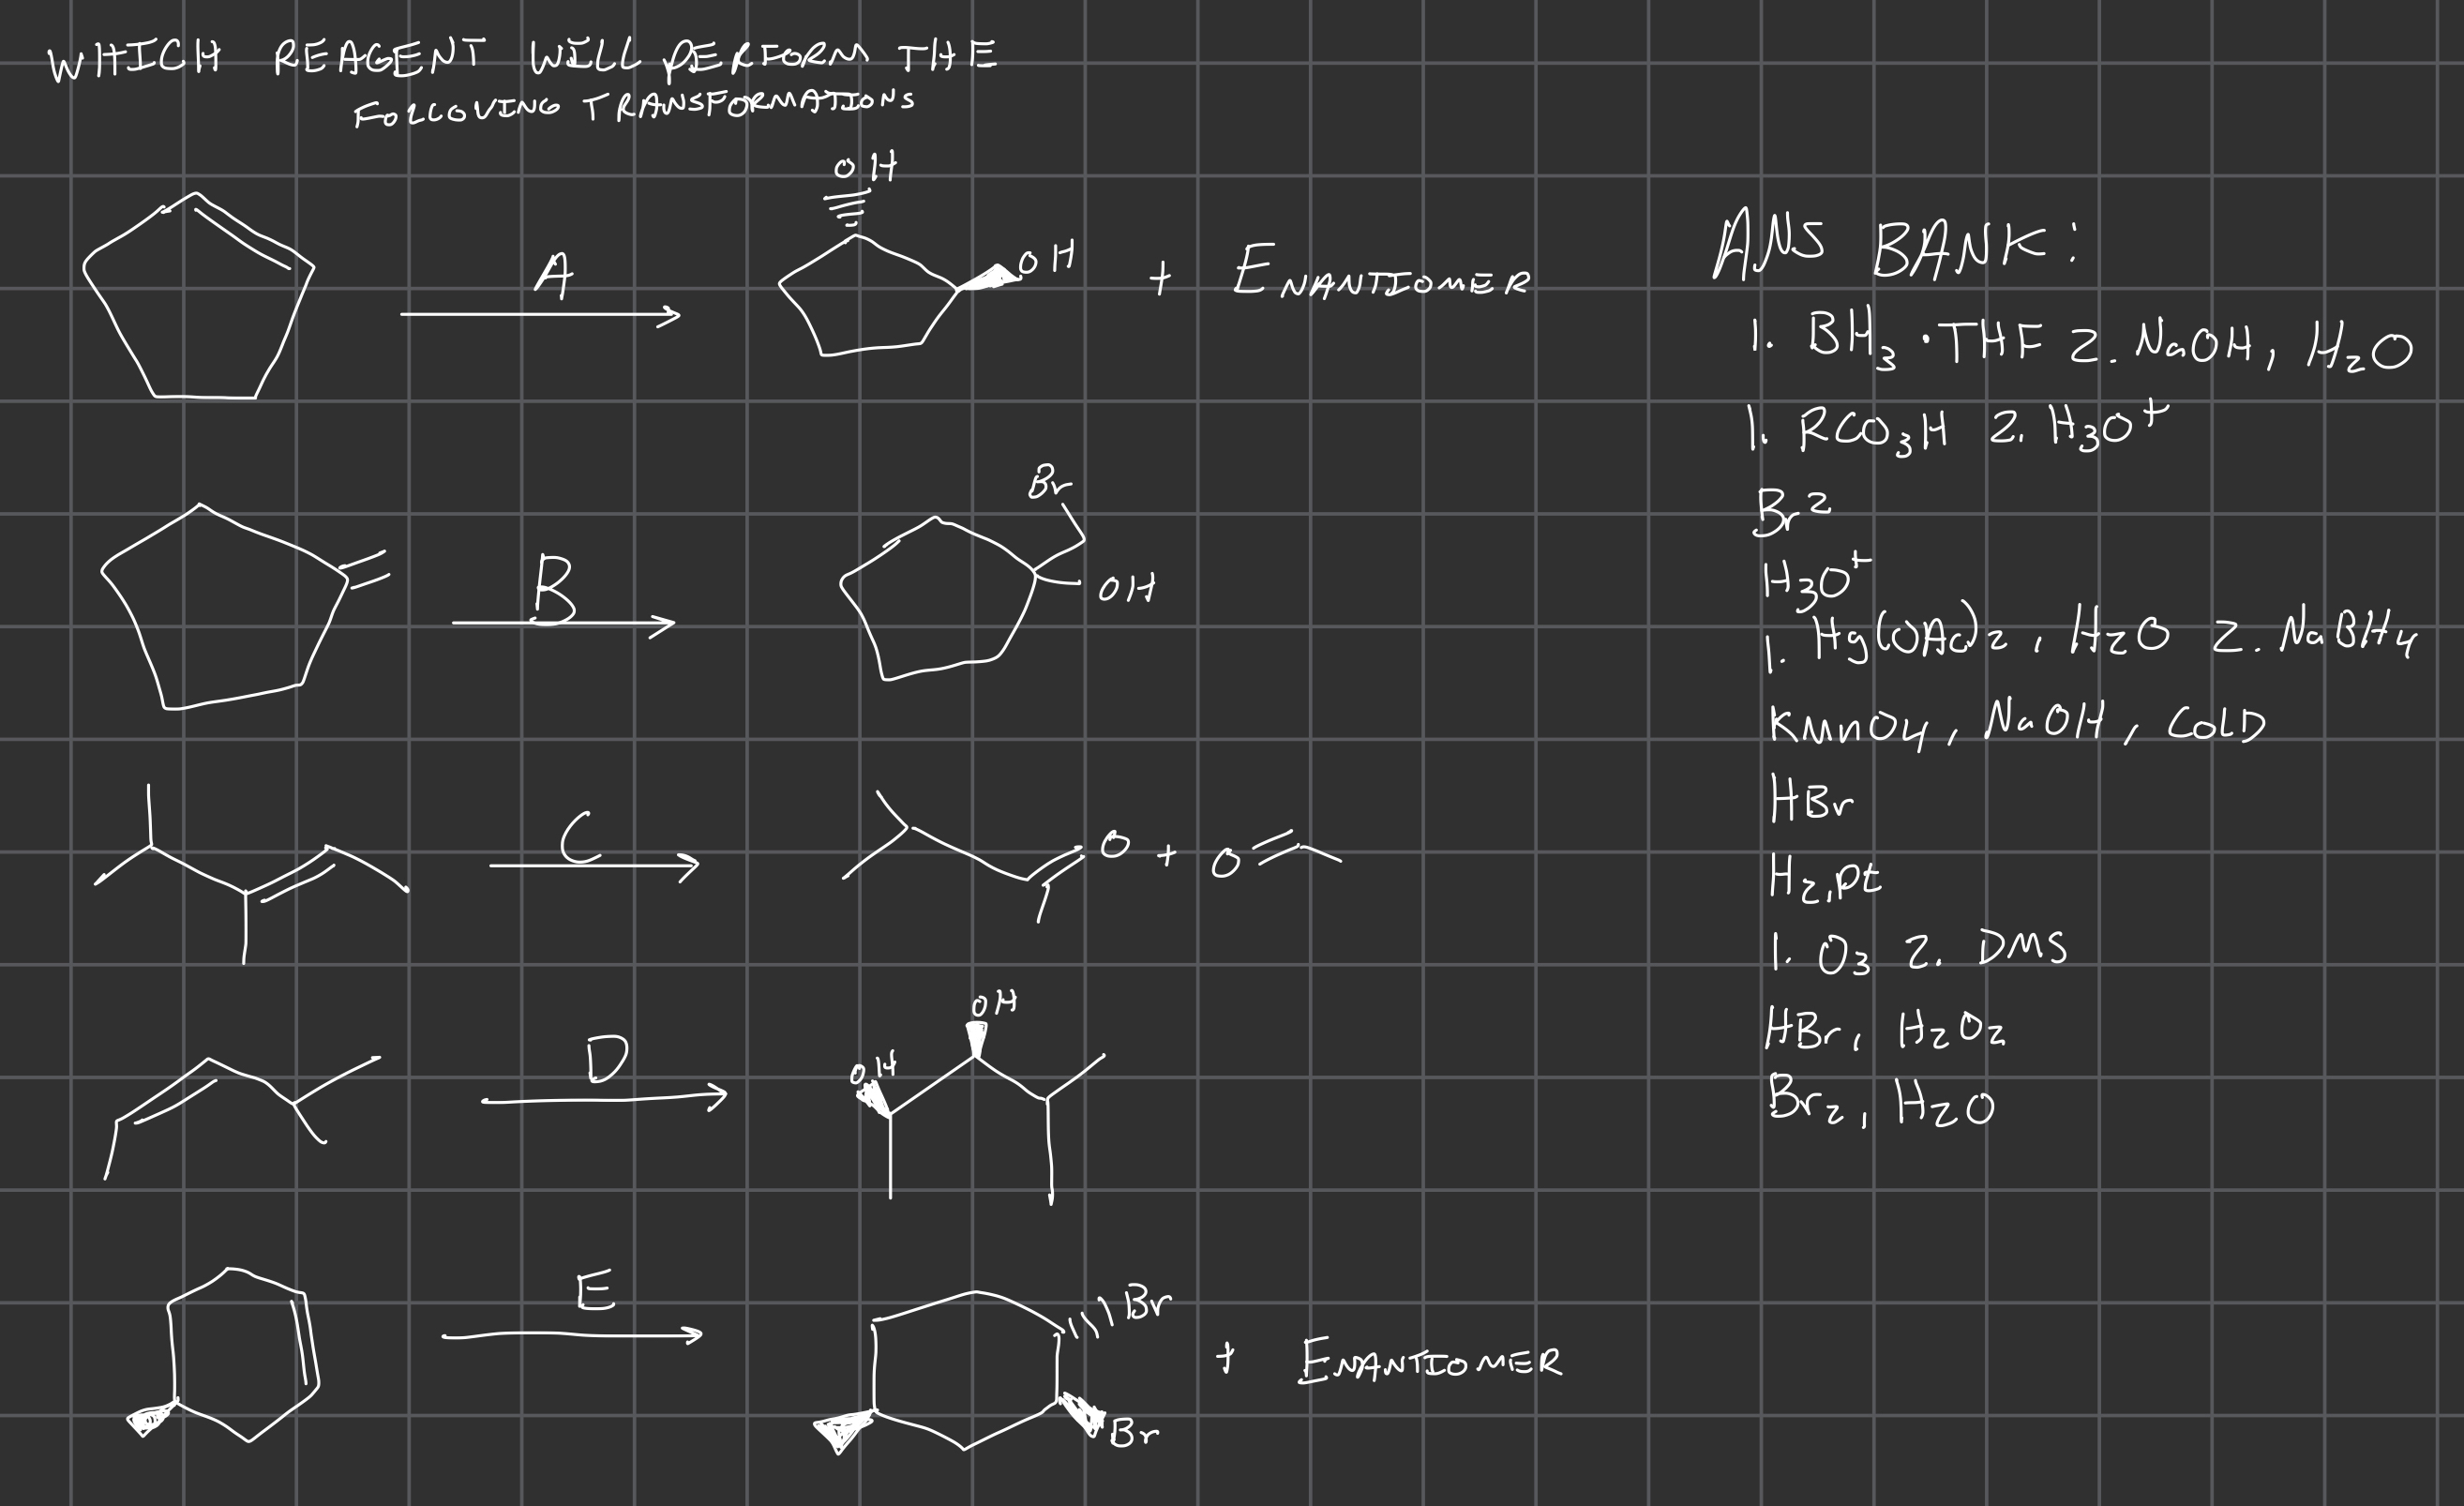 WHICH REAGENT WILL PERFORM THE
FOLLOWING TRANSFORMATIONS
OH
A
OH
+ ENANTIOMER
Br
B
OH
C
O + O
OH
D
OH
E
Br
+ ENANTIOMER
Br
ANS BANK:
1. BH3 · THF 2. NaOH, H2O
1. RCO3H 2. H3O+
Br2
H3O+
1. Hg(OAc)2, H2O 2. NaBH4
KMnO4, NaOH, COLD
HBr
H2, Pt
1. O3 2. DMS
HBr, H2O2
Br2, H2O